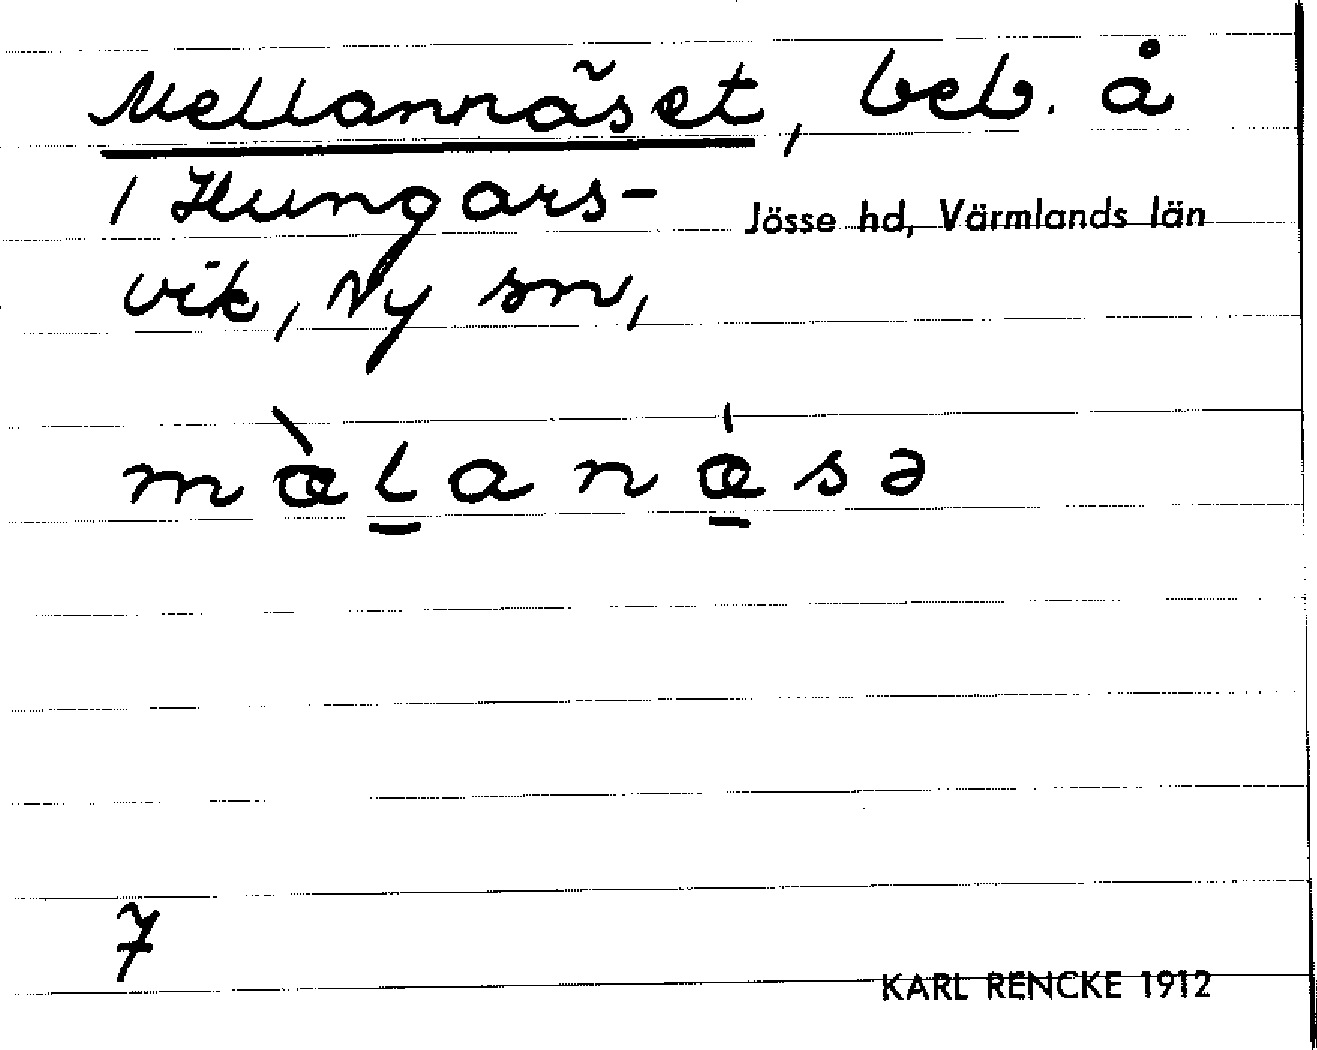 Mellannäset, beb. å
1 Hungars-
vik, Ny sn,
Jösse hd, Värmlands län
mæ̀l̲anæ̲̍sə
7
KARL RENCKE 1912